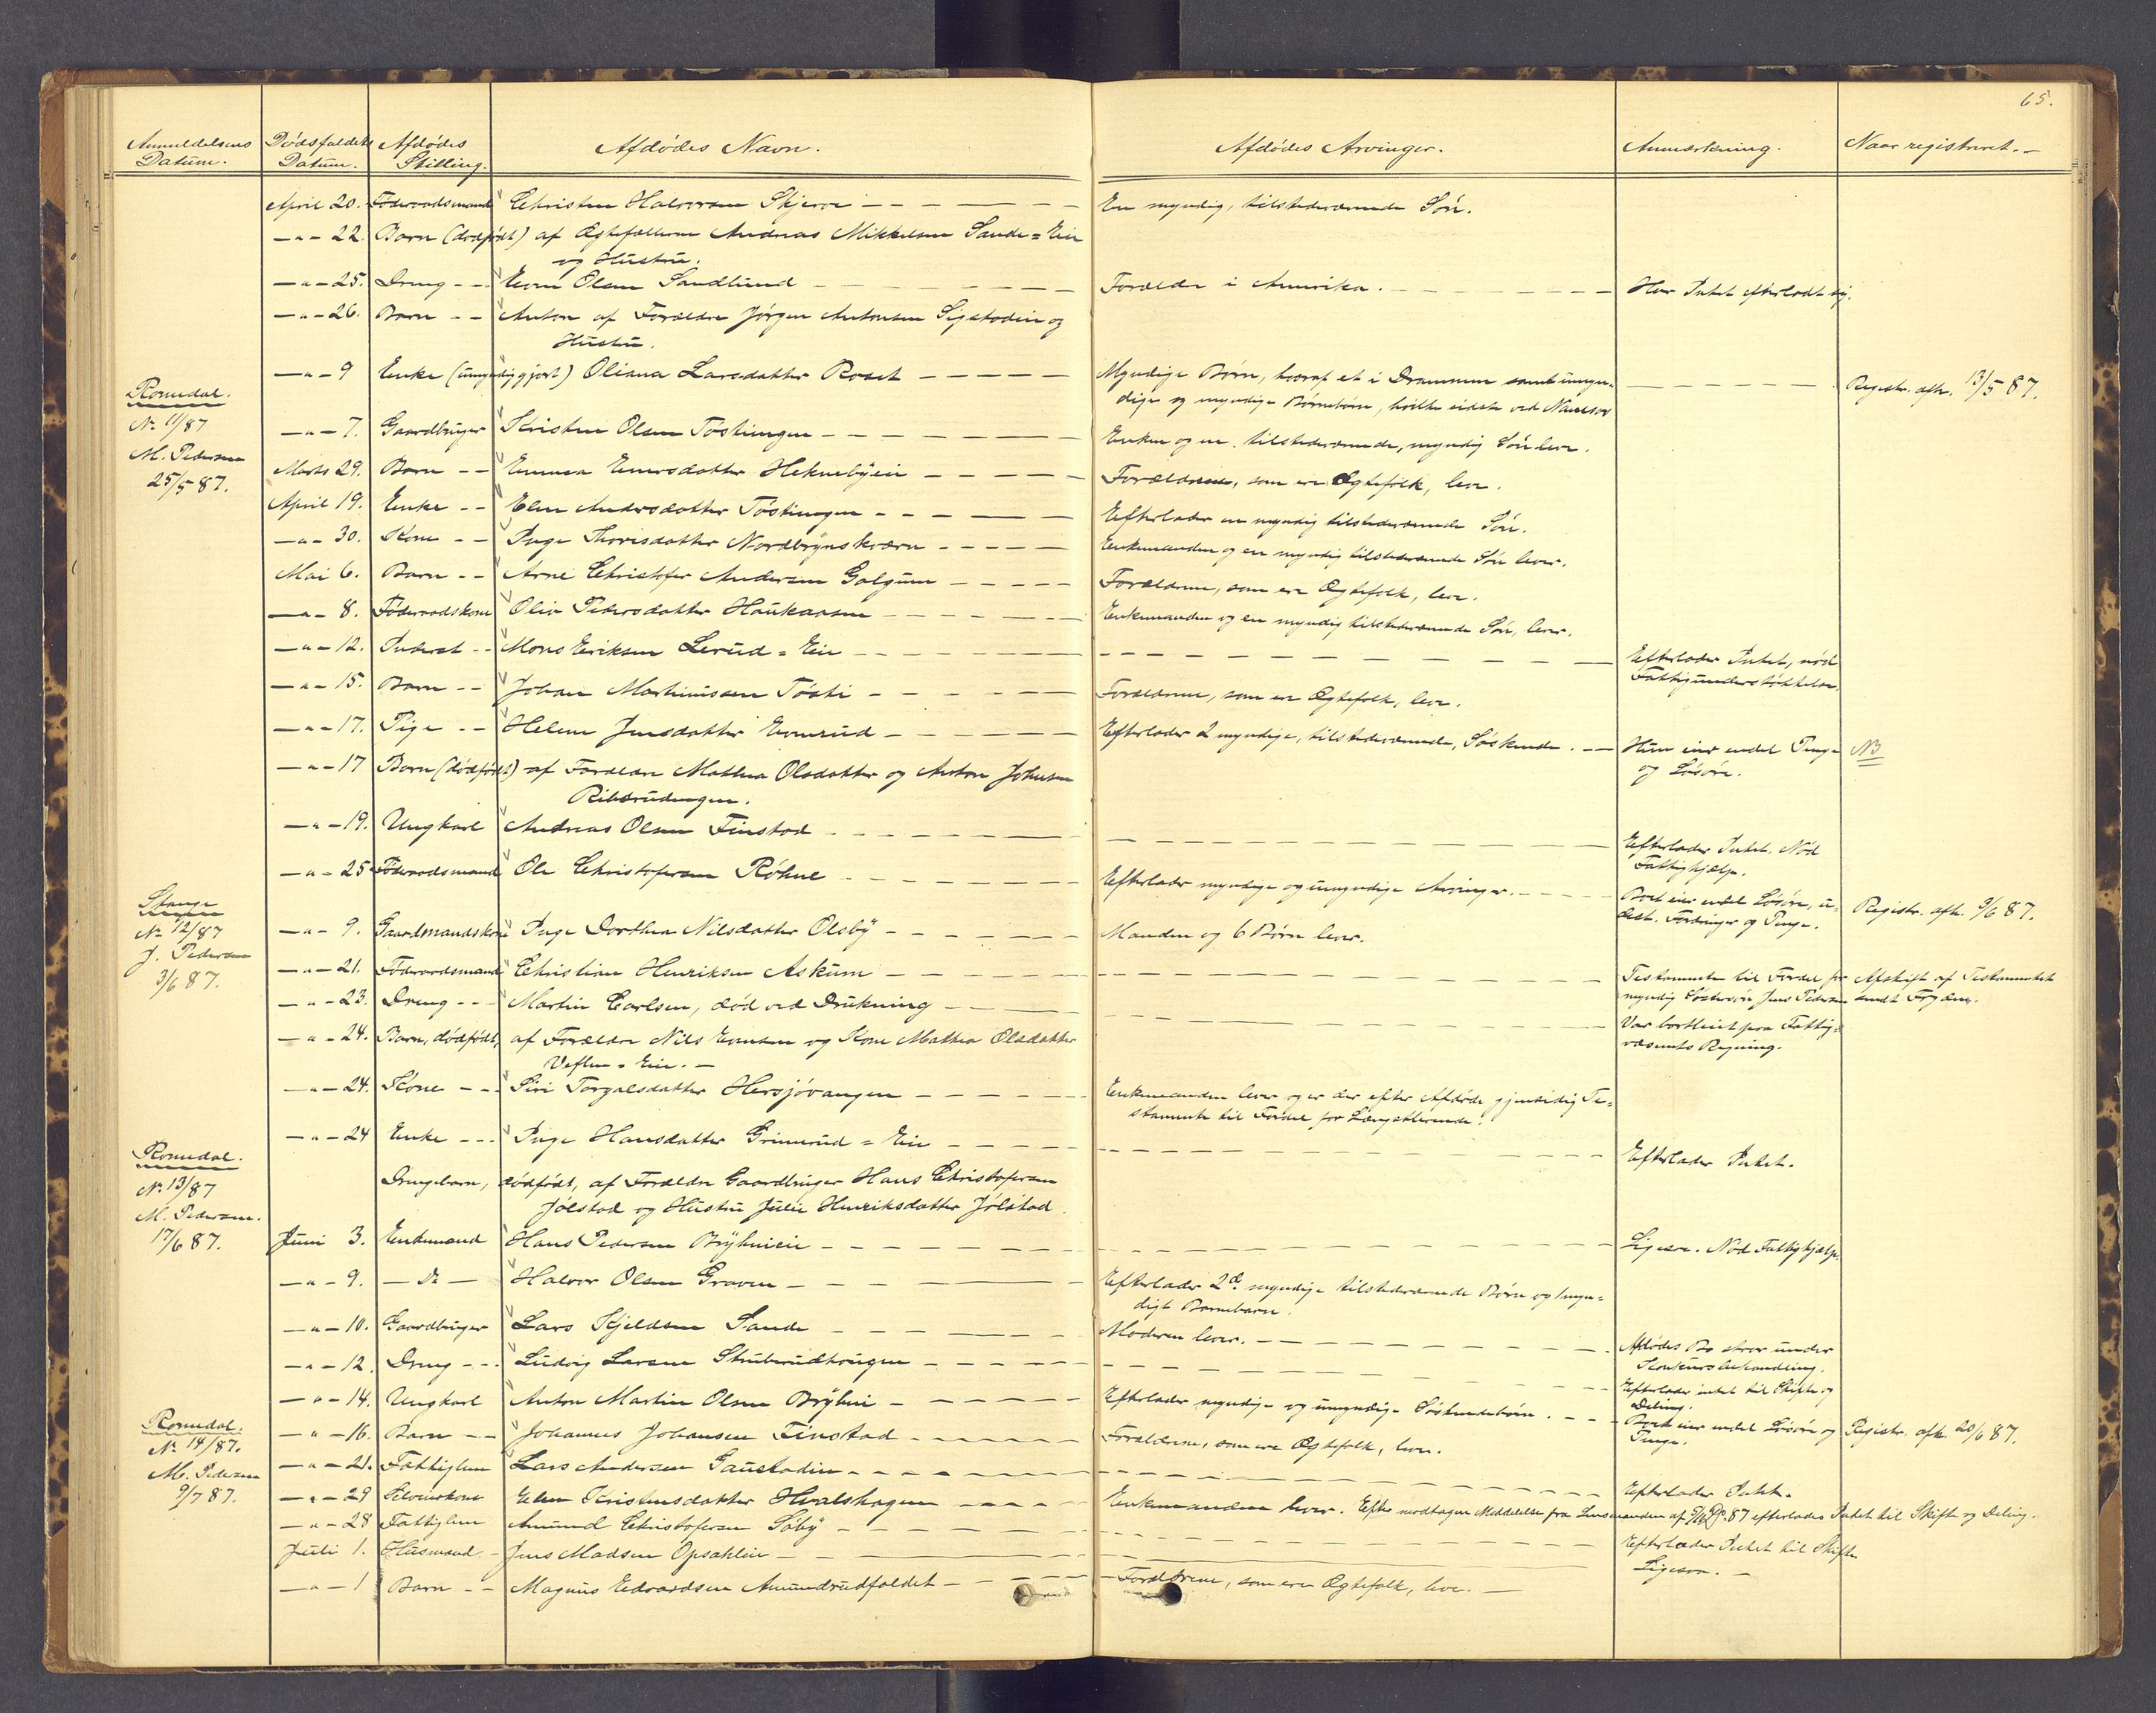 65.
Anmeldelsens Datum. Dødsfaldets Datum. Afdødes Stilling. Afdødes Navn. Afdødes Arvinger. Anmærkning. Naar registreret.
April 20. Föderaadsmand Christen Halvorsen Skjerve — En myndig, tilstedeværende Sön.
—"— 22. Barn (dødfødt) af Ægtefællerne Andreas Mikkelsen Sande=Eie
og Hustru.
—"— 25. Dreng — Even Olsen Sandlund — Forældre i Amerika. — Har Intet efterladt sig.
—"— 26. Barn — Anton af Forældre Jørgen Antonsen og
Hustru.
—"— 9 Enke (umyndiggjort) Oliana Larsdatter Roset — Myndige Børn, hvoraf et i Drammen samt umyn= — Registr. afh. 13/5 87.
dige og myndige Børnebørn, ved
Romedal.
No 11/87
M. Pedersen
25/5 87.
—"— 7. Gaardbruger Kristen Olsen Töstiengen — Enken og en tilstedeværende, myndig Sön lever.
Marts 29. Barn — Emma Evensdatter — Forældrene, som ere Ægtefolk, lever.
April 19. Enke — Elen Andersdatter Töstiengen — Efterlader en myndig tilstedeværende Sön.
—"— 30. Kone — Inge Thorisdatter Nordbrynskværn — Enkemanden og en myndig tilstedeværende Sön lever.
Mai 6. Barn — Arne Christofer Andersen Galgum — Forældrene, som ere Ægtefolk, leve.
—"— 8. Föderaadskone Olia Pedersdatter Haukaasen — Enkemanden og en myndig tilstedeværende Sön, lever.
—"— 12. Inderst — Mons Eriksen Lerud=Eie — Efterlader Intet, nød
Fattigunderstøttelse.
—"— 15. Barn — Johan Martinussen Tösti — Forældrene, som ere Ægtefolk, leve.
—"— 17. Pige — Helene Jensdatter Evenrud — Efterlader 2 myndige, tilstedeværende, Söskende. — Hun eier endel Penge NB
og Løsøre.
—"— 17 Barn (dødfødt) af Forældre Mathea Olsdatter og Anton Johnsen
—"— 19. Ungkarl Andreas Olsen Finstad — Efterlader Intet. Nød
Fattighjælp.
—"— 25 Föderaadsmand Ole Christofersen Röhne — Efterlader myndige og umyndige Arvinger. — Boet eier endel Løsøre, u= Registr. afh. 9/6 87.
Fordringer og Penge.
Stange
No 12/87
J. Pedersen
3/6 87.
—"— 9. Gaardmandskone Inge Dorthea Nilsdatter Olsby — Manden og 6 Børn lever.
—"— 21. Föderaadsmand Christian Henriksen Askum — Testamente til Fordel for Afskrift af Testamentet
myndig Søstersøn Jens Pedersen sendt
—"— 23. Dreng — Martin Carlsen, død ved Drukning — Var bortleiet paa Fattig=
væsenets Regning.
—"— 24. Barn, dødfødt, af Forældre Nils Evensen og Kone Mathea Olsdatter
Veflen=Eie.
—"— 24. Kone — Siri Torgalsdatter Hersjövangen — Enkemanden lever og er der efter Afdøde gjensidig Te=
stamente til Fordel for Længstlevende.
—"— 24 Enke — Inge Hansdatter Grimerud=Eie — Efterlader Intet.
Romedal.
No 13/87
M. Pedersen.
17/6 87.
Drengebarn, dødfødt, af Forældre Gaardbruger Hans Christofersen
Jølstad og Hustru Julie Henriksdatter Jølstad.
Juni 3. Enkemand Hans Pedersen Bryhnieie — Ligesaa. Nød Fattighjælp.
—"— 9. — Do — Halvor Olsen Graven — Efterlader 2de myndige tilstedeværende Børn og 1 myn=
digt Barnebarn.
—"— 10. Gaardbruger Lars Kjeldsen Sande — Moderen lever. — Afdødes Bo staar under
Konkursbehandling.
—"— 12. Dreng — Ludvig Larsen — Efterlader intet til Skifte og
Deling.
—"— 14. Ungkarl Anton Martin Olsen Bryhni — Efterlader myndige og umyndige Söskendebörn. — Boet eier endel Løsøre og Registr. afh. 20/6 87.
Penge.
—"— 16. Barn — Johannes Johansen Finstad — Forældrene, som ere Ægtefolk, leve.
Romedal.
No 14/87.
M. Pedersen
9/7 87.
—"— 21. Fattiglem Lars Andersen Gaustadie — Efterlader Intet.
—"— 29 Selveierkone Elen Kristensdatter Hvalshagen — Enkemanden lever. Efter modtagen Meddelelse fra Lensmanden af 87 efterlades Intet til Skifte og Deling.
—"— 28 Fattiglem Amund Christofersen Söby — Efterlader Intet til Skifte
Juli 1. Husmand — Jens Madsen Opsahleie — Ligesaa.
—"— 1 Barn — Magnus Edvardsen Amundrudfaldet — Forældrene, som ere Ægtefolk, leve.